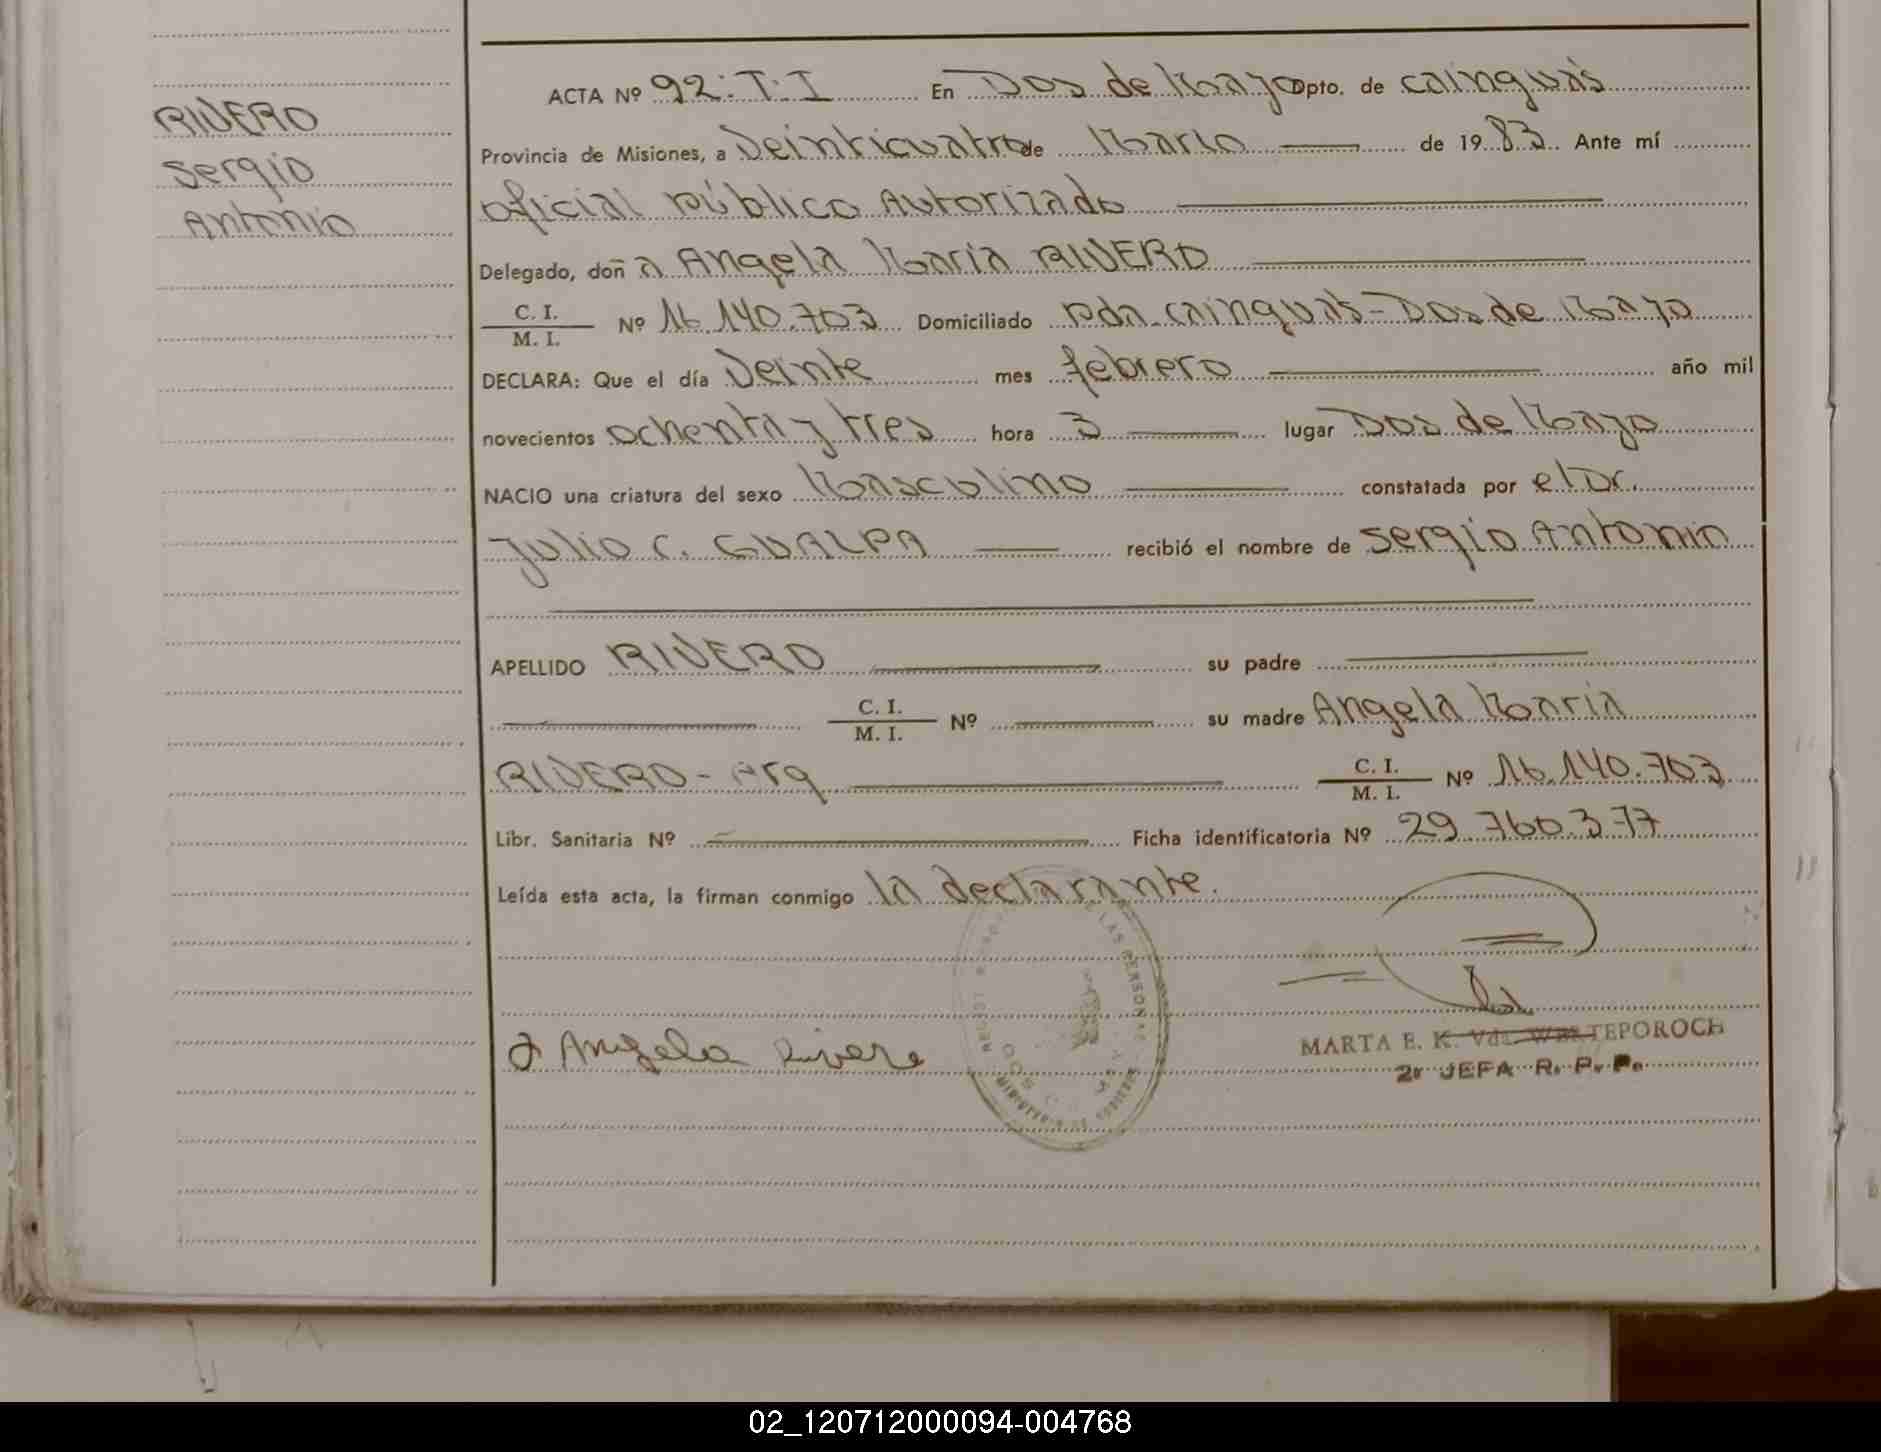 RIVERO
Sergio
Antonio
ACTA Nº 92. T. I En Dos de Mayo Dpto. de Cainguás
Provincia de Misiones, a Veinticuatro de Marzo de 1983. Ante mí
Oficial Público Autorizado
Delegado, doña Angela María RIVERO
C. I.
M. I. Nº 16.140.703 Domiciliado Pda. Cainguás - Dos de Mayo
DECLARA: Que el día Veinte mes febrero año mil
novecientos ochenta y tres hora 3 lugar Dos de Mayo
NACIO una criatura del sexo Masculino constatada por el Dr.
Julio C. GUALPA recibió el nombre de Sergio Antonio
APELLIDO RIVERO su padre
C. I.
M. I. Nº su madre Angela María
RIVERO - Arg C. I.
M. I. Nº 16.140.703
Libr. Sanitaria Nº Ficha identificatoria Nº 29.760.377
Leída esta acta, la firman conmigo la declarante.
Angela Rivero
MARTA E. K. Vda.
2ª JEFA R. P. P.
02_120712000094-004768